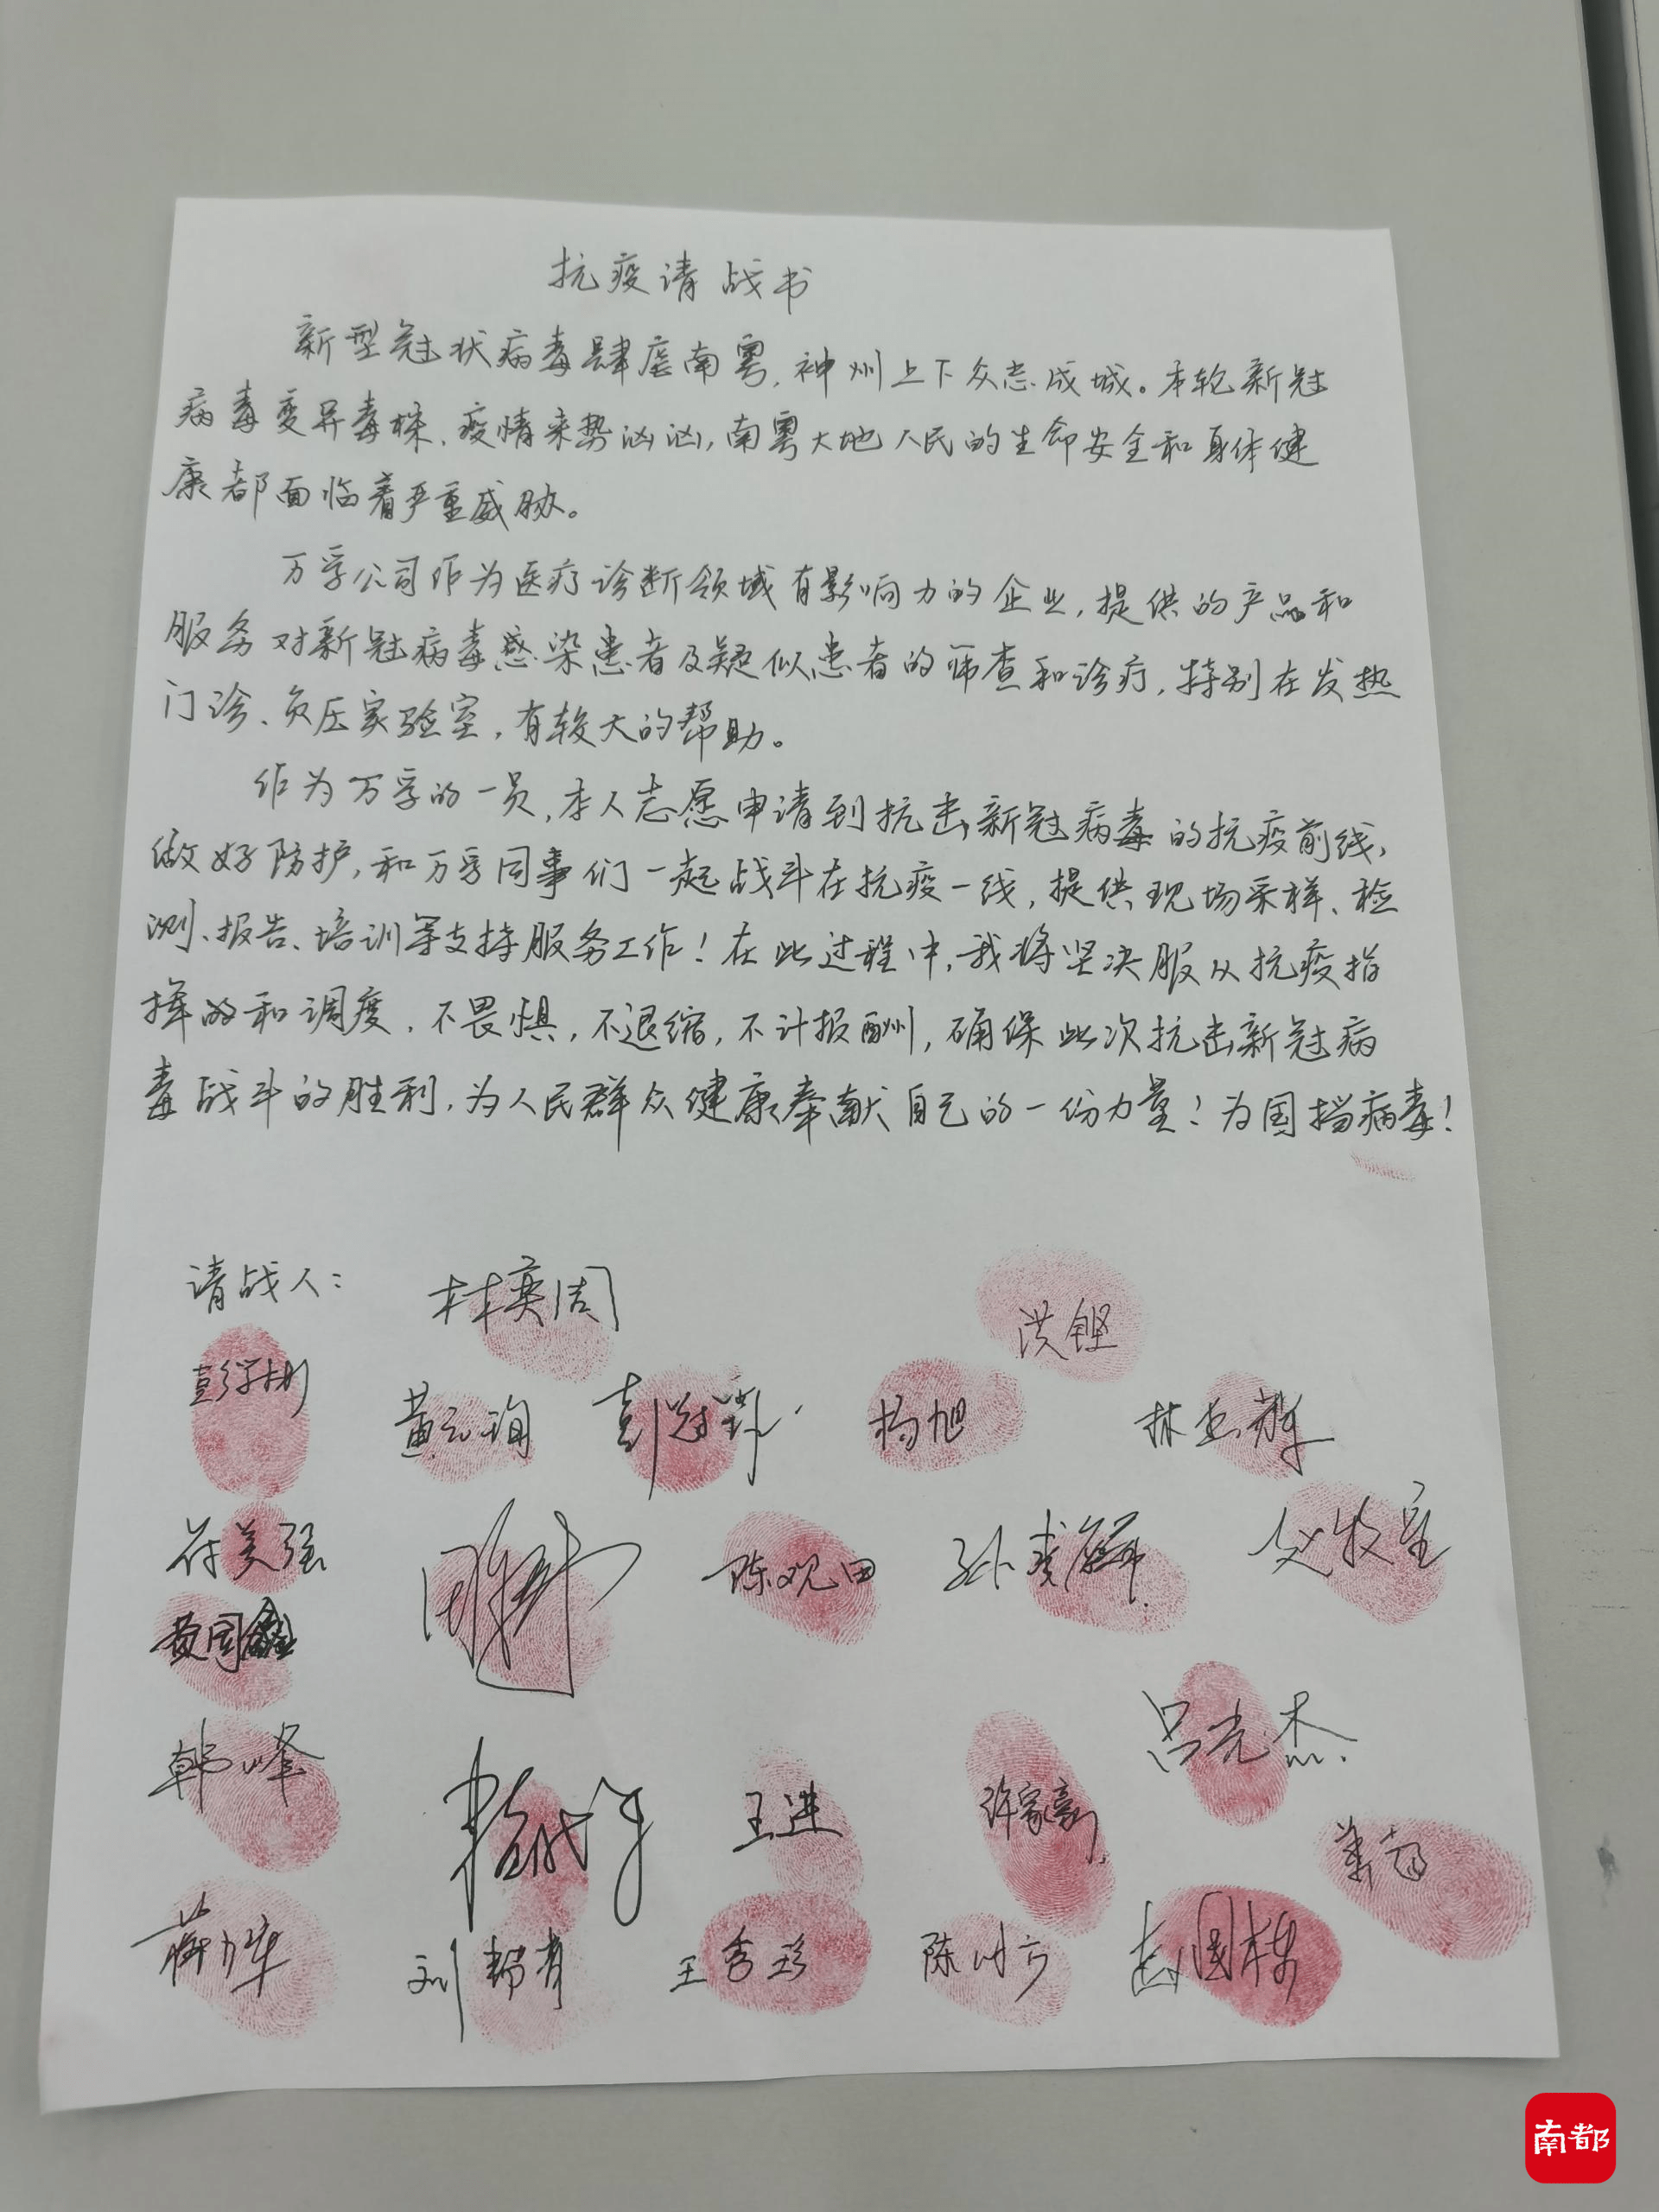 抗疫请战书
新型冠状病毒肆虐南粤,神州上下众志成城。本轮新冠
病毒变异毒株、疫情来势汹汹,南粤大地人民的生命安全和身体健
康都面临着严重威胁。
万孚公司作为医疗诊断领域有影响力的企业,提供的产品和
服务对新冠病毒感染患者及疑似患者的筛查和诊疗,特别在发热
门诊、负压实验室,有较大的帮助。
作为万孚的一员,本人志愿申请到抗击新冠病毒的抗疫前线,
做好防护,和万孚同事们一起战斗在抗疫一线,提供现场采样、检
测、报告、培训等支持服务工作!在此过程中,我将坚决服从抗疫指
挥的和调度,不畏惧,不退缩,不计报酬,确保此次抗击新冠病
毒战斗的胜利,为人民群众健康奉献自己的一份力量!为国挡病毒!
请战人:
林英周
洪铿
杨旭
符美强
陈观田
黄国鑫
韩峰
吕光杰
王进
许家豪
王秀珍
赵国栋
南都